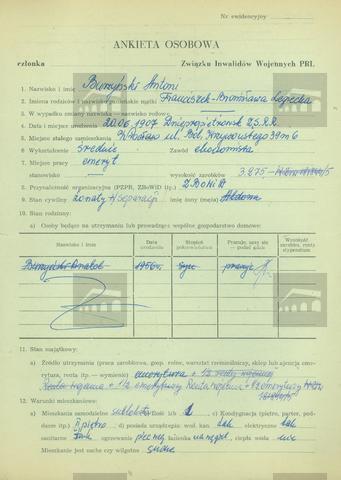 Nr ewidencyjny
ANKIETA OSOBOWA
członka Związku Inwalidów Wojennych PRL
1. Nazwisko i imię Burzyński Antoni
2. Imiona rodziców i nazwisko panieńskie matki Franciszek-Bronisława Łepecka
3. W wypadku zmiany nazwiska — nazwisko rodowe —
4. Data i miejsce urodzenia 20.06.1907 Dniepropietrowsk ZSRR
5. Miejsce stałego zamieszkania ul. Bol. Krzywoustego 39 m 6
6. Wykształcenie średnie Zawód ekonomista
7. Miejsce pracy emeryt
stanowisko — wysokość zarobków 3.275
8. Przynależność organizacyjna (PZPR, ZBoWiD itp.) ZBoWiD
9. Stan cywilny żonaty w separacji imię żony (męża) Aldona
10. Stan rodzinny:
a) Osoby będące na utrzymaniu lub prowadzące wspólne gospodarstwo domowe:
Nazwisko i imię Data urodzenia Stopień pokrewieństwa Pracuje, uczy się — podać gdzie Wysokość zarobku, renty stypendium
Burzyński 1956 r. syn pracuje
11. Stan majątkowy:
a) Źródło utrzymania (praca zarobkowa, gosp. rolne, warsztat rzemieślniczy, sklep lub ajencja, emerytura, renta itp. — wymienić) emerytura + 1/2 renty
12. Warunki mieszkaniowe:
a) Mieszkanie samodzielne sublokator Ilość izb 1 c) Kondygnacja (piętro, parter, poddasze itp.) II piętro d) posiada urządzenia: wod. kan. tak elektryczne tak
sanitarne tak ogrzewanie piecowe łazienka ciepła woda nie
Mieszkanie jest suche czy wilgotne suche